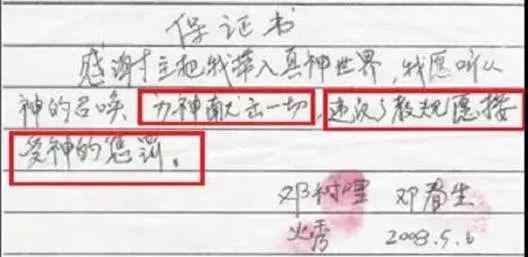 保证书
感谢主把我带入真神世界,我愿听从
神的召唤 为神献出一切,违反了教规愿接
受神的惩罚。
邓树理 邓春生
火秀 2003.5.6